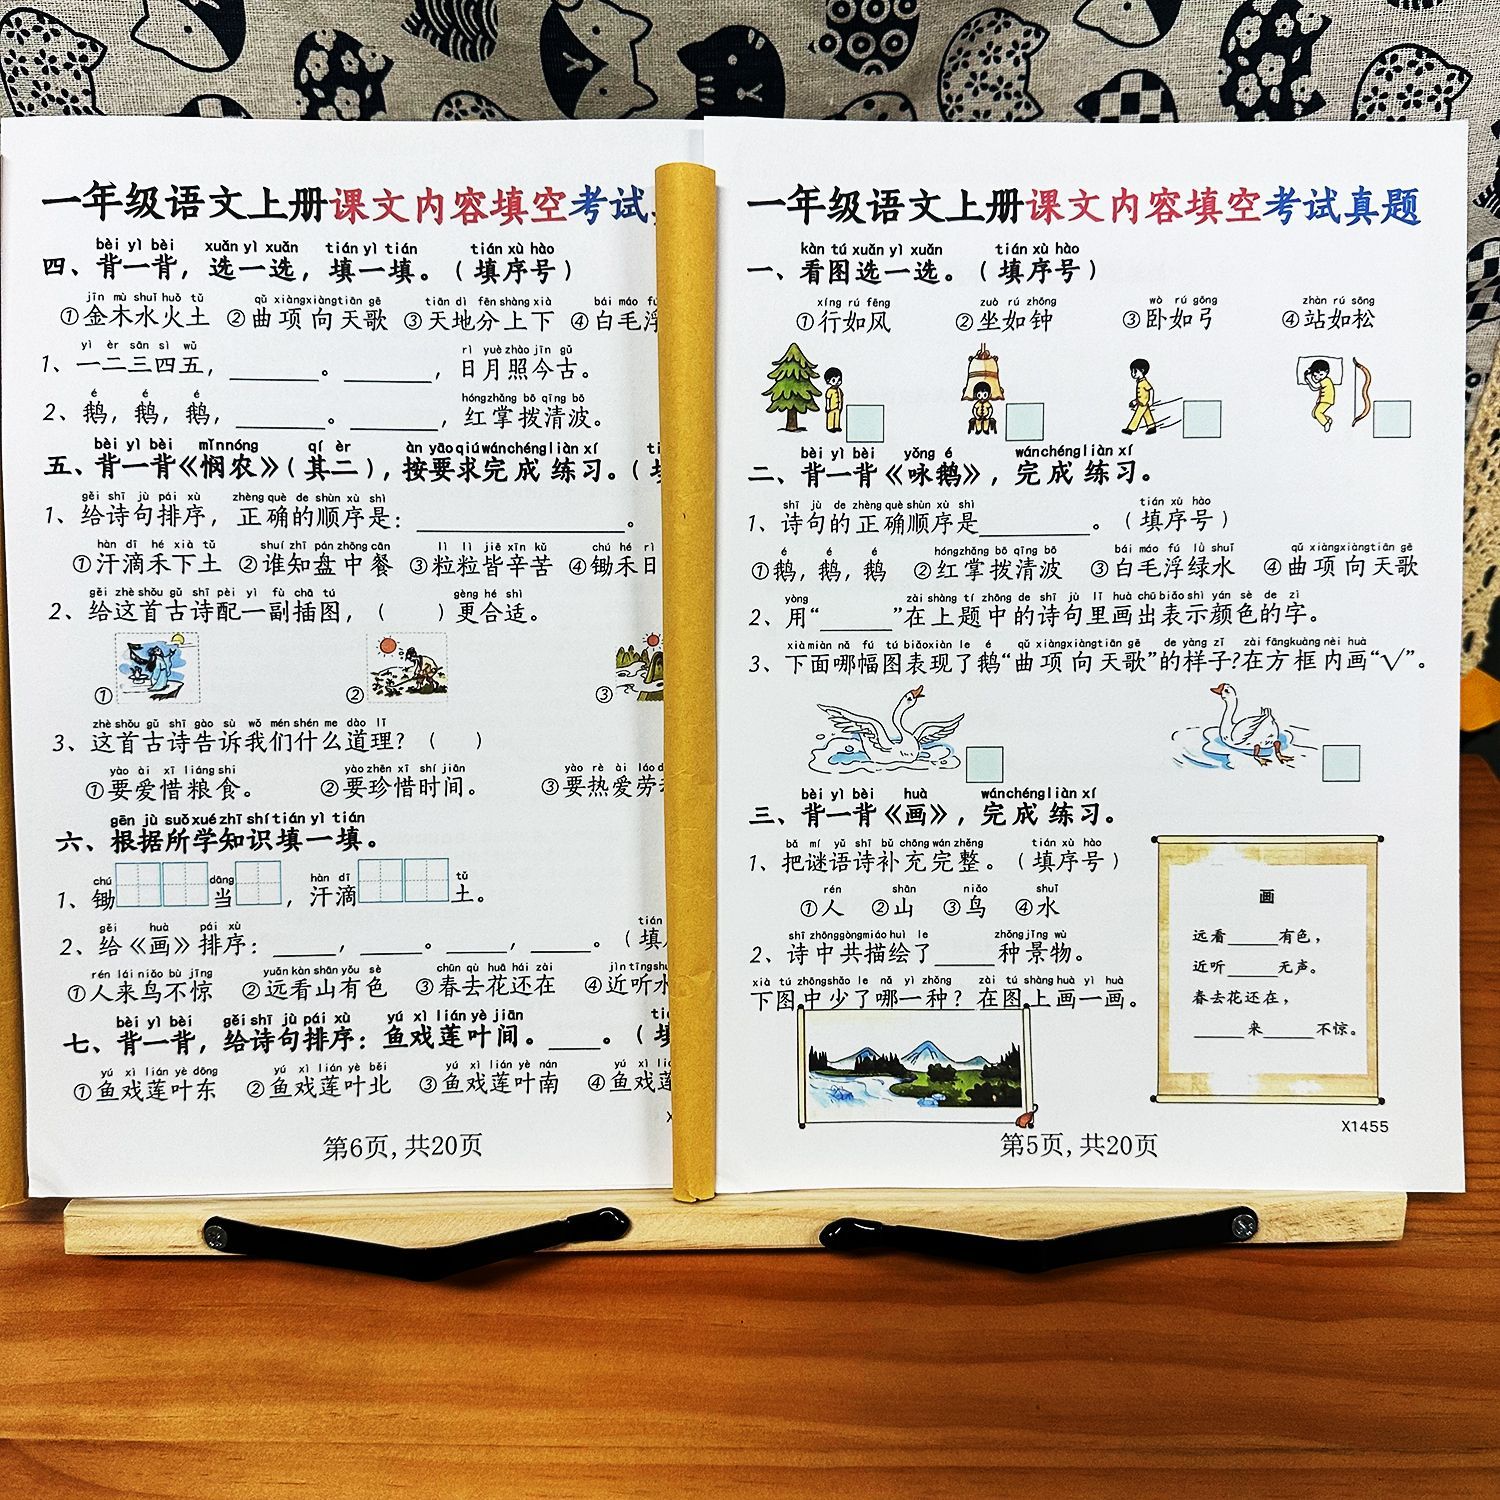 一年级语文上册课文内容填空考试
bèi yì bèi xuǎn yì xuǎn tián yì tián tián xù hào
四、背一背，选一选，填一填。（填序号）
jīn mù shuǐ huǒ tǔ qū xiàng xiàng tiān gē tiān dì fēn shàng xià bái máo fú
①金木水火土 ②曲项向天歌 ③天地分上下 ④白毛浮
yì èr sān sì wǔ rì yuè zhào jīn gǔ
1、一二三四五，______。______，日月照今古。
é é é hóng zhǎng bō qīng bō
2、鹅，鹅，鹅，______。______，红掌拨清波。
bèi yì bèi mǐn nóng qí èr àn yāo qiú wán chéng liàn xí
五、背一背《悯农》（其二），按要求完成练习。（
gěi shī jù pái xù zhèng què de shùn xù shì
1、给诗句排序，正确的顺序是：____________。
hàn dī hé xià tǔ shuí zhī pán zhōng cān lì lì jiē xīn kǔ chú hé rì
①汗滴禾下土 ②谁知盘中餐 ③粒粒皆辛苦 ④锄禾日
gěi zhè shǒu gǔ shī pèi yì fù chā tú gèng hé shì
2、给这首古诗配一副插图，（ ）更合适。
① ② ③
zhè shǒu gǔ shī gào sù wǒ mén shén me dào lǐ
3、这首古诗告诉我们什么道理？（ ）
yào ài xī liáng shi yào zhēn xī shí jiān yào rè ài láo
①要爱惜粮食。 ②要珍惜时间。 ③要热爱劳
gēn jù suǒ xué zhī shí tián yì tián
六、根据所学知识填一填。
chú dāng hàn dī tǔ
1、锄 当 ，汗滴 土。
gěi huà pái xù tián
2、给《画》排序：____，____。____，____。（填
rén lái niǎo bù jīng yuǎn kàn shān yǒu sè chūn qù huā hái zài jìn tīng shuǐ
①人来鸟不惊 ②远看山有色 ③春去花还在 ④近听水
bèi yì bèi gěi shī jù pái xù yú xì lián yè jiān
七、背一背，给诗句排序：鱼戏莲叶间。____。（填
yú xì lián yè dōng yú xì lián yè běi yú xì lián yè nán yú xì lián
①鱼戏莲叶东 ②鱼戏莲叶北 ③鱼戏莲叶南 ④鱼戏莲
第6页，共20页
一年级语文上册课文内容填空考试真题
kàn tú xuǎn yì xuǎn tián xù hào
一、看图选一选。（填序号）
xíng rú fēng zuò rú zhōng wò rú gōng zhàn rú sōng
①行如风 ②坐如钟 ③卧如弓 ④站如松
bèi yì bèi yǒng é wán chéng liàn xí
二、背一背《咏鹅》，完成练习。
shī jù de zhèng què shùn xù shì tián xù hào
1、诗句的正确顺序是________。（填序号）
é é é hóng zhǎng bō qīng bō bái máo fú lǜ shuǐ qū xiàng xiàng tiān gē
①鹅，鹅，鹅 ②红掌拨清波 ③白毛浮绿水 ④曲项向天歌
yòng zài shàng tí zhōng de shī jù lǐ huà chū biǎo shì yán sè de zì
2、用“______”在上题中的诗句里画出表示颜色的字。
xià miàn nǎ fú tú biǎo xiàn le é qū xiàng xiàng tiān gē de yàng zǐ zài fāng kuàng nèi huà
3、下面哪幅图表现了鹅“曲项向天歌”的样子?在方框内画“√”。
bèi yì bèi huà wán chéng liàn xí
三、背一背《画》，完成练习。
bǎ mí yǔ shī bǔ chōng wán zhěng tián xù hào
1、把谜语诗补充完整。（填序号）
rén shān niǎo shuǐ
①人 ②山 ③鸟 ④水
shī zhōng gòng miáo huì le zhǒng jǐng wù
2、诗中共描绘了____种景物。
xià tú zhōng shǎo le nǎ yì zhǒng zài tú shàng huà yì huà
下图中少了哪一种？在图上画一画。
画
远看____有色，
近听____无声。
春去花还在，
____来____不惊。
X1455
第5页，共20页